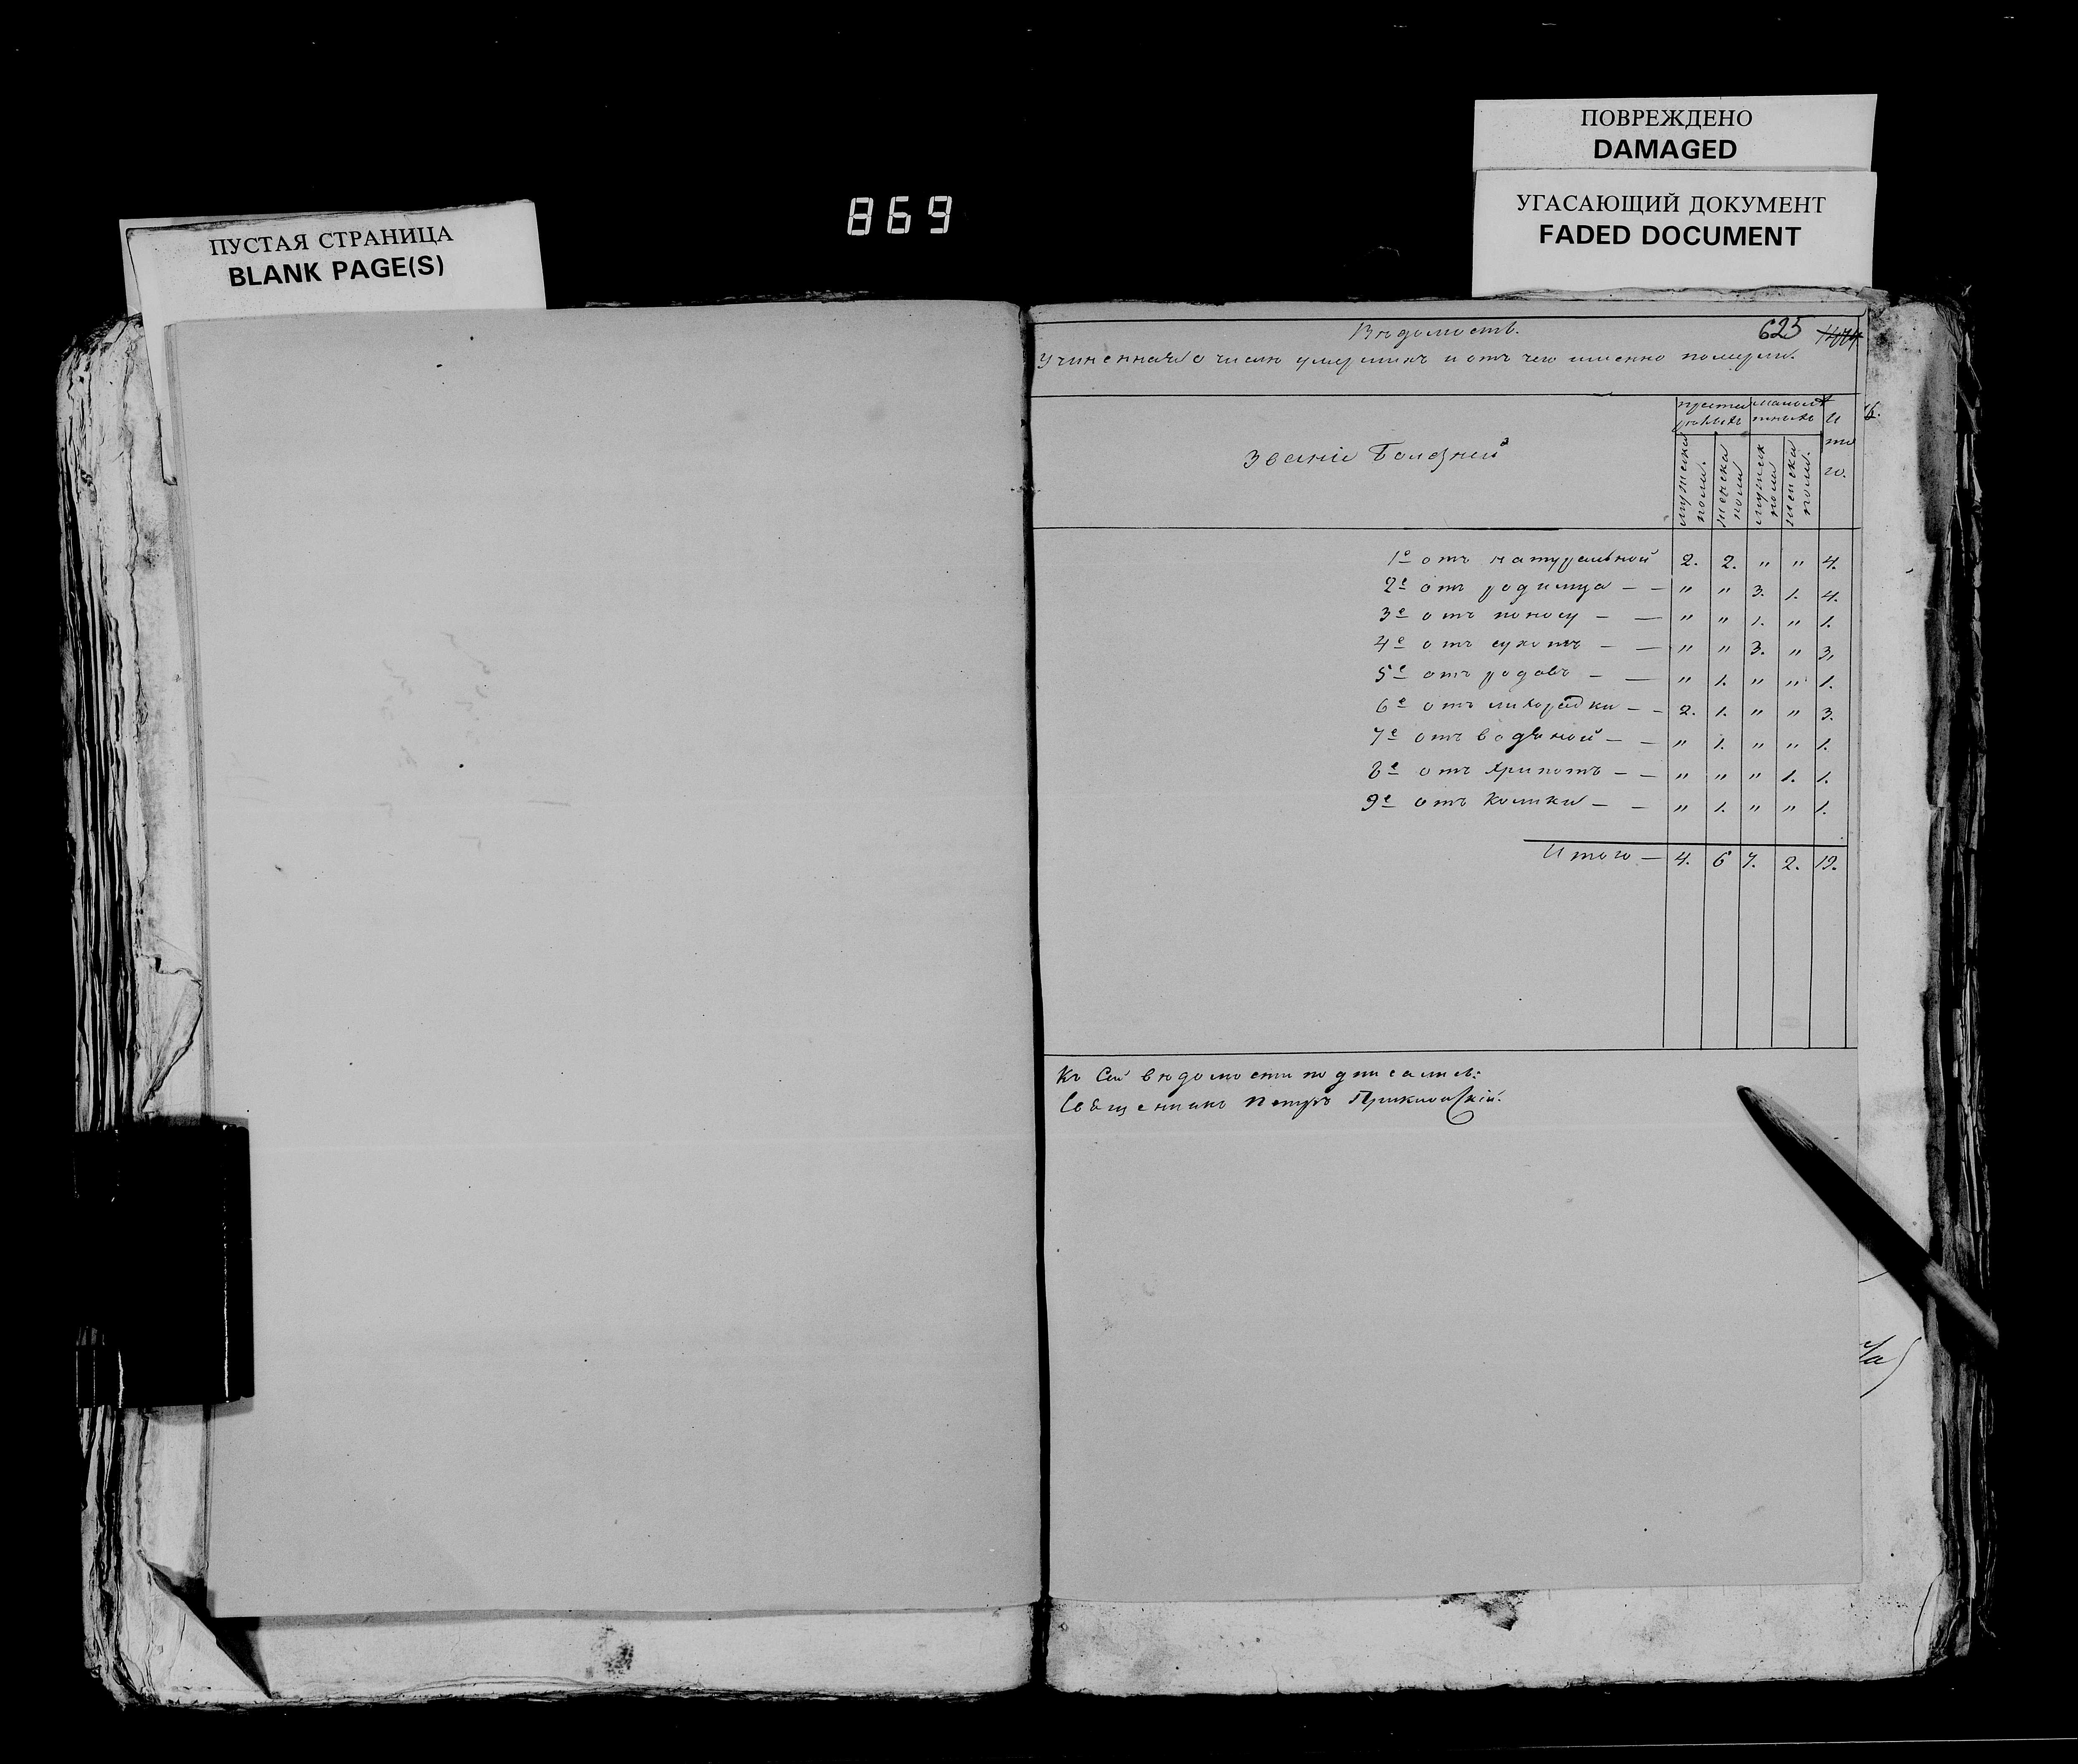 ПОВРЕЖДЕНО
DAMAGED
УГАСАЮЩИЙ ДОКУМЕНТ
FADED DOCUMENT
869
ПУСТАЯ СТРАНИЦА
BLANK PAGE(S)
Вѣдомость. 625
Учиненная о числѣ умершихъ и отъ чего именно померли.
Званіе Болезней
Мужеска пола. Женска пола Мужеск пола Женска пола. Итого.
1е отъ натуральной 2. 2. " " 4.
2е отъ родимца — — " " 3. 1. 4.
3е отъ поносу — — " " 1. " 1.
4е отъ сухотъ — — " " 3. " 3.
5е отъ родовъ — — " 1. " " 1.
6е отъ лихорадки — — 2. 1. " " 3.
7е отъ водяной — — " 1. " " 1.
8е отъ хрипотъ — — " " " 1. 1.
9е отъ Колики — — " 1. " " 1.
Итого — 4. 6 7. 2. 19.
Къ Сей вѣдомости подписались:
Священникъ Петръ Приклонскій.